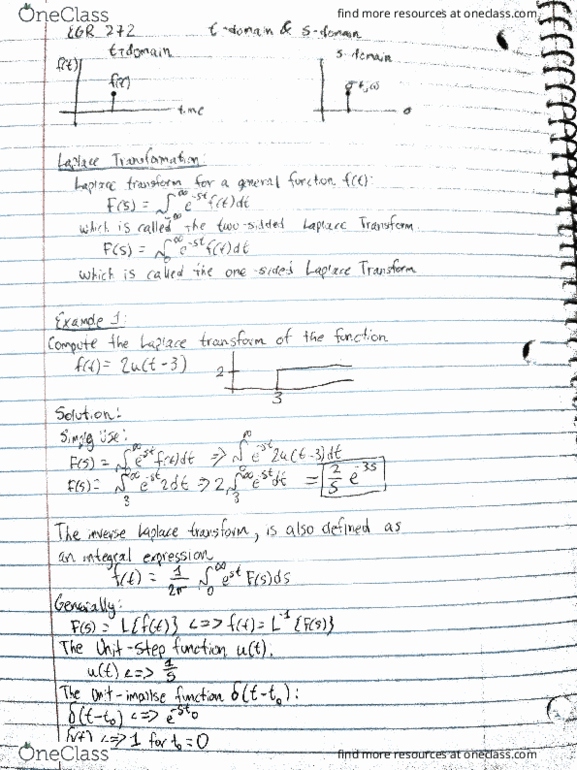 OneClass find more resources at oneclass.com
EGR 272 t-domain & s-domain
t-domain s-domain
f(t) f(t) σ+, ω
time σ
Laplace Transformation:
Laplace transform for a general function f(t):
F(s) = ∫_{-∞}^{∞} e^{-st} f(t) dt
which is called the two-sided Laplace Transform.
F(s) = ∫_0^{∞} e^{-st} f(t) dt
which is called the one-sided Laplace Transform
Example 1:
Compute the Laplace transform of the function
f(t) = 2u(t-3) 2
3
Solution:
Simply Use:
F(s) = ∫_0^{∞} e^{-st} f(t) dt => ∫_0^{∞} e^{-st} 2u(t-3) dt
F(s) = ∫_3^{∞} e^{-st} 2 dt => 2 ∫_3^{∞} e^{-st} dt = 2/s e^{-3s}
The inverse Laplace transform, is also defined as
an integral expression
f(t) = 1/2π ∫_0^{∞} e^{st} F(s) ds
Generally:
F(s) = L{f(t)} <=> f(t) = L^{-1}{F(s)}
The Unit-step function u(t):
u(t) <=> 1/s
The Unit-impulse function δ(t-t₀):
δ(t-t₀) <=> e^{-st₀}
δ(t) <=> 1 for t₀ = 0
OneClass find more resources at oneclass.com